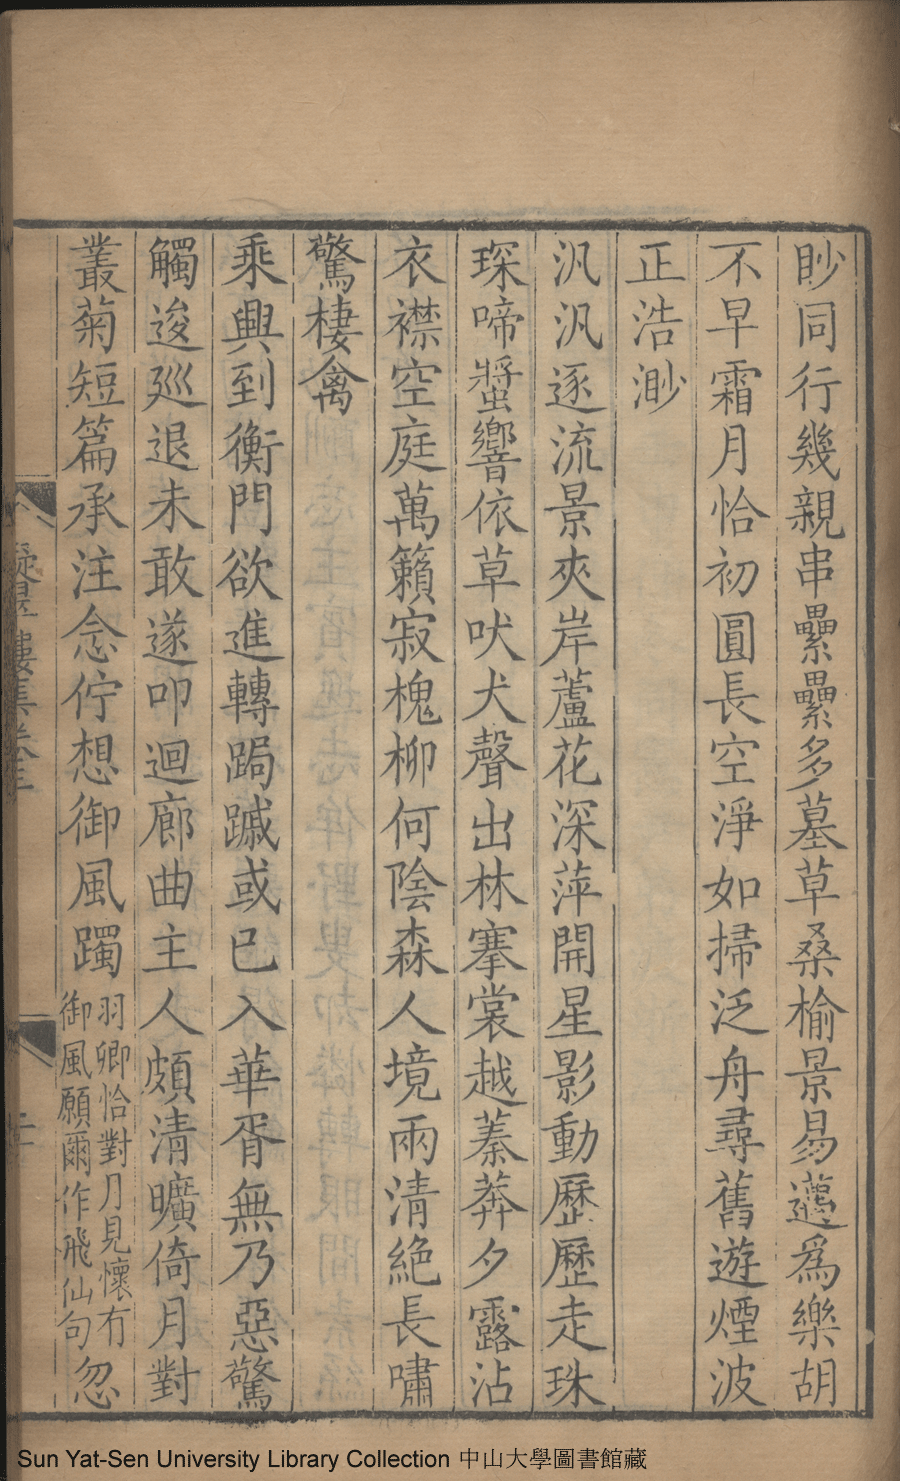 眇同行幾親串纍纍多墓草桑榆景易邁爲樂胡
不早霜月恰初圓長空淨如掃泛舟尋舊遊煙波
正浩渺
汎汎逐流景夾岸蘆花深萍開星影動歷歷走珠
琛啼螿響依草吠犬聲出林搴裳越蓁莽夕露沾
衣襟空庭萬籟寂槐柳何陰森人境兩清絕長嘯
驚棲禽
乘興到衡門欲進轉跼蹐或已入華胥無乃惡驚
觸逡廵退未敢遂叩迴廊曲主人頗清曠倚月對
叢菊短篇承注念佇想御風躅羽卿恰對月見懷有御風願爾作飛仙句忽
樓集卷三
Sun Yat-Sen University Library Collection 中山大學圖書館藏